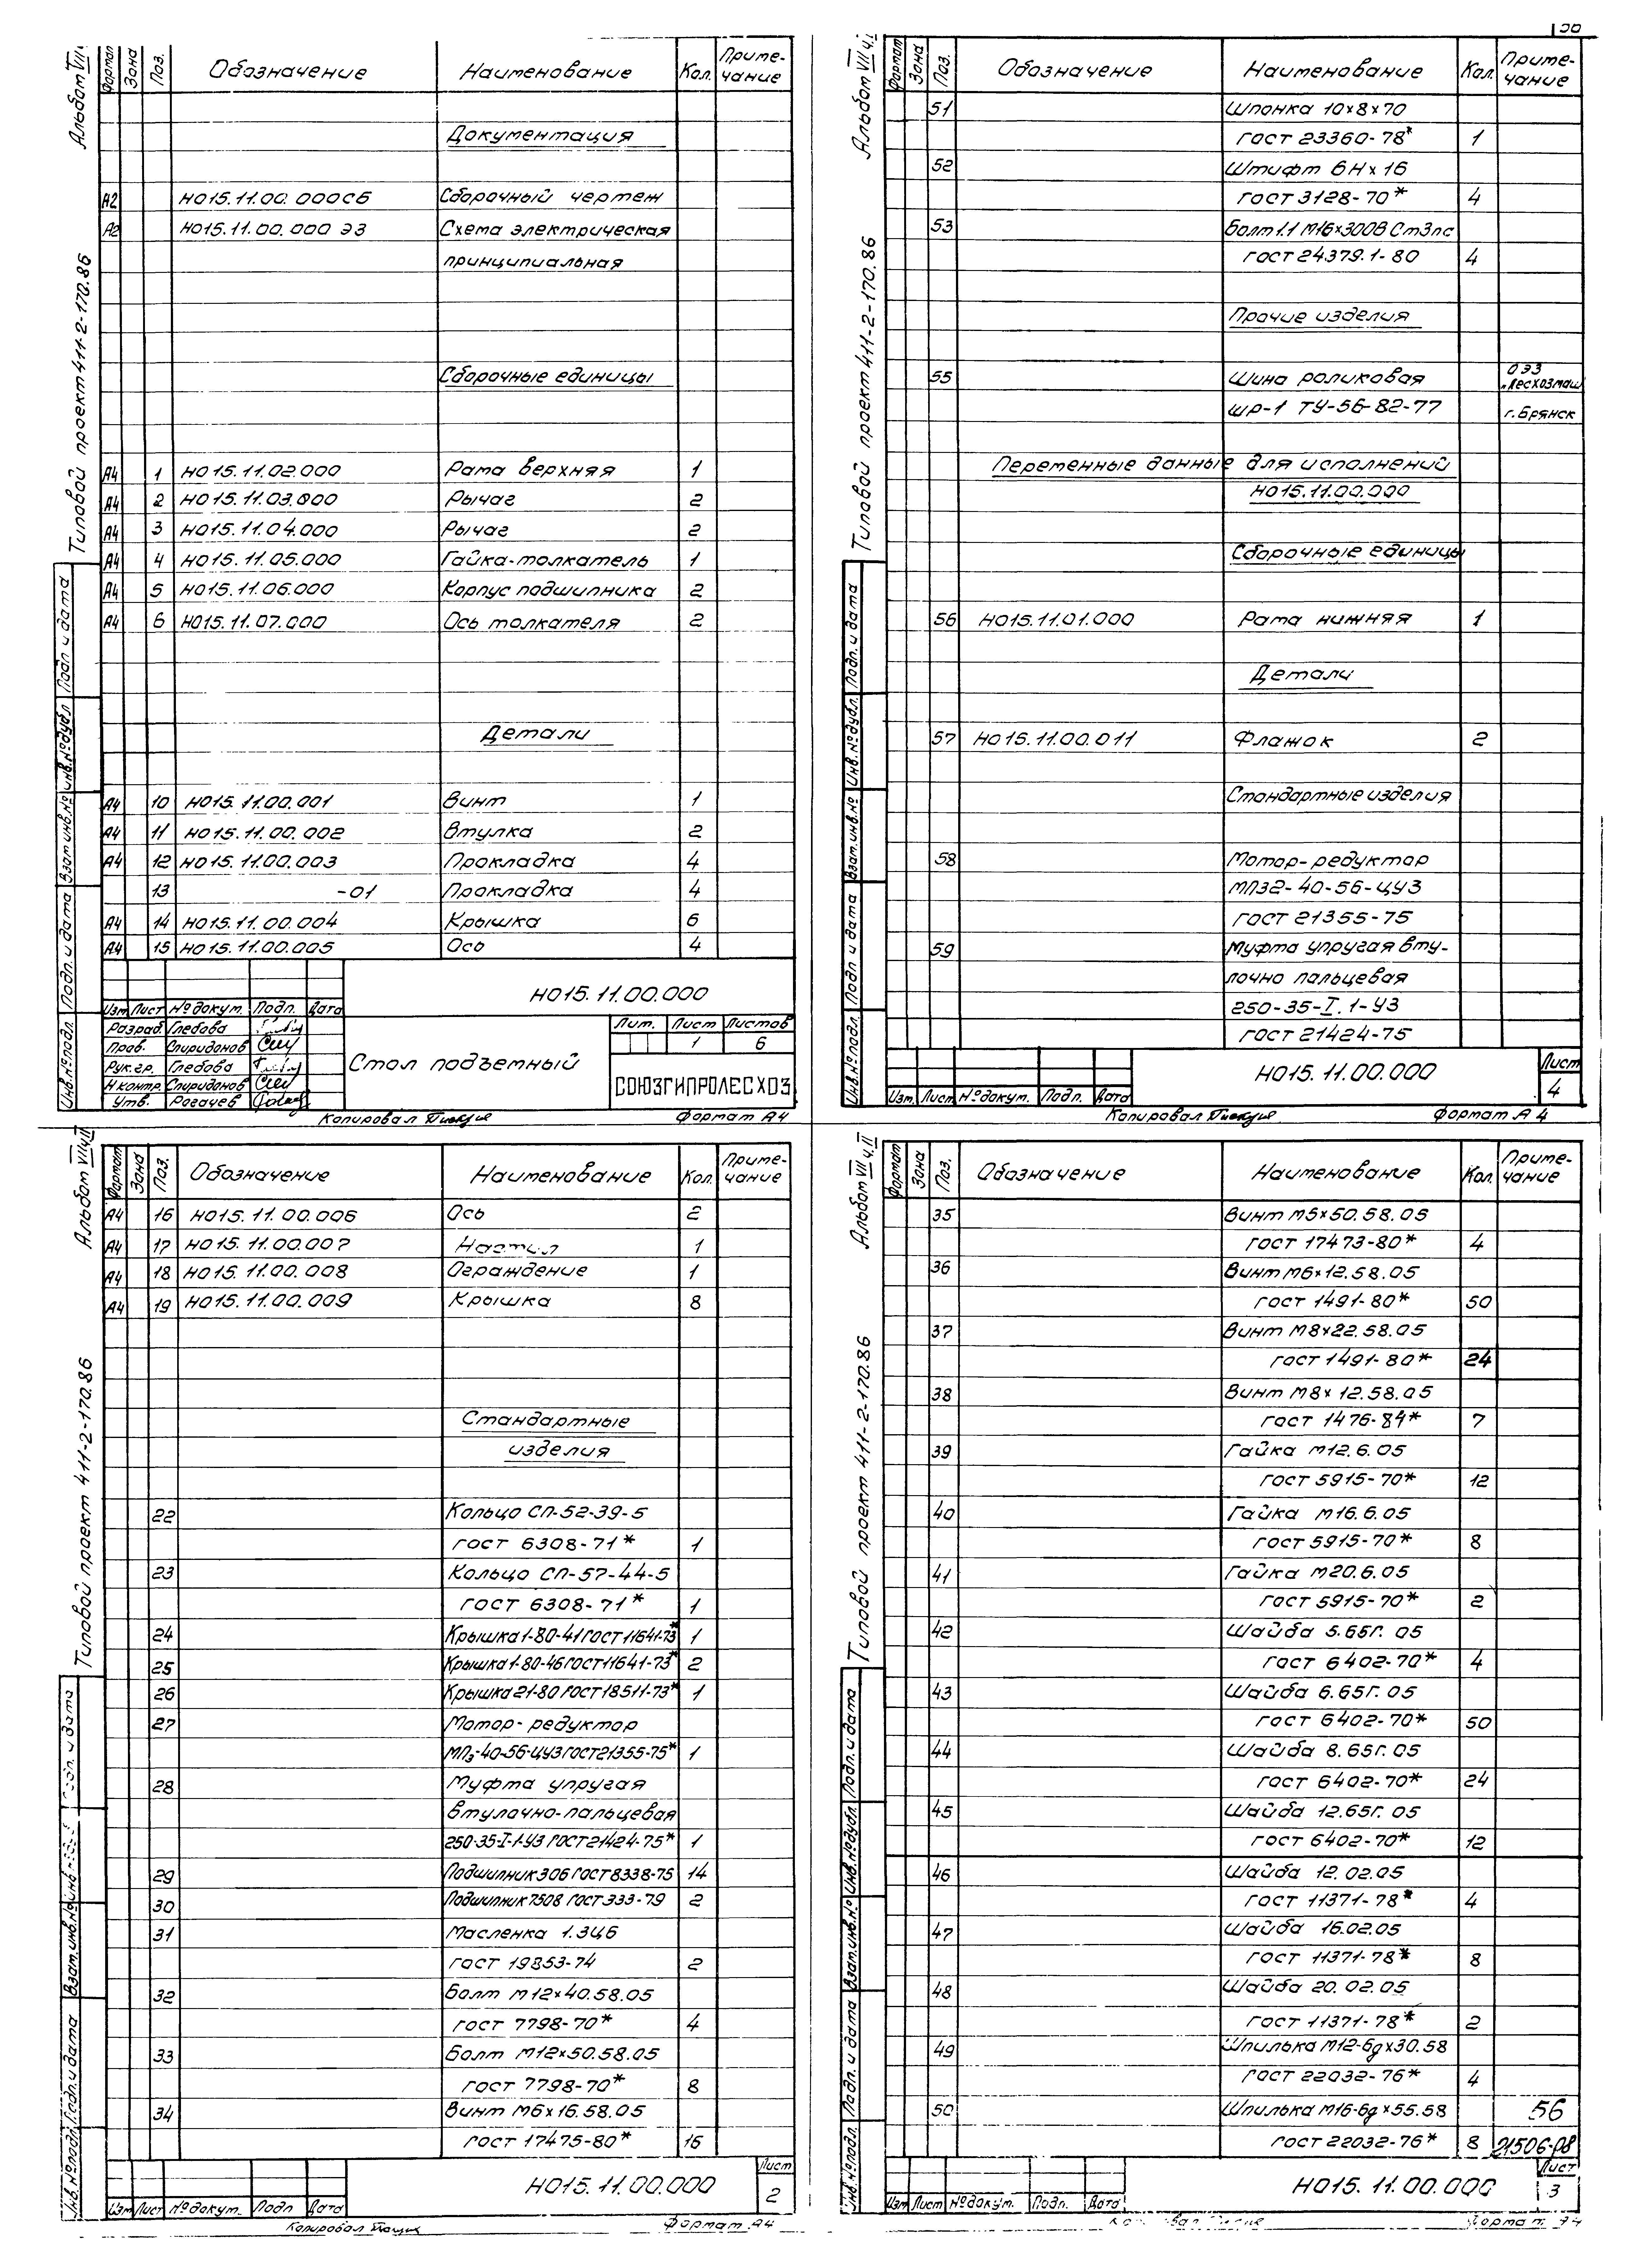 Альбом VII
Типовой проект 411-2-170.86
Формат Зона Поз. Обозначение Наименование Кол. Приме-
чание
Документация
А2 НО15.11.00.000СБ Сборочный чертеж
А2 НО15.11.00.000 ЭЗ Схема электрическая
принципиальная
Сборочные единицы
А4 1 НО15.11.02.000 Рама верхняя 1
А4 2 НО15.11.03.000 Рычаг 2
А4 3 НО15.11.04.000 Рычаг 2
А4 4 НО15.11.05.000 Гайка-толкатель 1
А4 5 НО15.11.06.000 Корпус подшипника 2
А4 6 НО15.11.07.000 Ось толкателя 2
Детали
А4 10 НО15.11.00.001 Винт 1
А4 11 НО15.11.00.002 Втулка 2
А4 12 НО15.11.00.003 Прокладка 4
13 -01 Прокладка 4
А4 14 НО15.11.00.004 Крышка 6
А4 15 НО15.11.00.005 Ось 4
Инв.№подл. Подп. и дата Взам.инв.№ Инв.№дубл. Подп. и дата
НО15.11.00.000
Изм Лист № докум. Подп. Дата
Разраб. Глебова
Пров. Спиридонов
Рук.гр. Глебова
Н.контр. Спиридонов
Утв. Рогачев
Стол подъемный
Лит. Лист Листов
1 6
СОЮЗГИПРОЛЕСХОЗ
Копировал Формат А4
Альбом VII ч.
Типовой проект 411-2-170.86
Формат Зона Поз. Обозначение Наименование Кол. Приме-
чание
51 Шпонка 10×8×70
ГОСТ 23360-78* 1
52 Штифт 6Н×16
ГОСТ 3128-70* 4
53 Болт 1.1 М16×300В Ст3пс
ГОСТ 24379.1-80 4
Прочие изделия
55 Шина роликовая ОЭЗ
"Лесхозмаш
ШР-1 ТУ-56-82-77 г. Брянск
Переменные данные для исполнений
НО15.11.00.000
Сборочные единицы
56 НО15.11.01.000 Рама нижняя 1
Детали
57 НО15.11.00.011 Флажок 2
Стандартные изделия
58 Мотор-редуктор
МПз2-40-56-ЦУ3
ГОСТ 21355-75
59 Муфта упругая вту-
лочно пальцевая
250-35-I.1-У3
ГОСТ 21424-75
Инв.№подл. Подп и дата Взам.инв.№ Инв.№дубл. Подп. и дата
НО15.11.00.000 Лист
4
Изм. Лист № докум. Подп. Дата
Копировал Формат А4
Альбом VII ч.II
Типовой проект 411-2-170.86
Формат Зона Поз. Обозначение Наименование Кол. Приме-
чание
А4 16 НО15.11.00.006 Ось 2
А4 17 НО15.11.00.007 Настил 1
А4 18 НО15.11.00.008 Ограждение 1
А4 19 НО15.11.00.009 Крышка 8
Стандартные
изделия
22 Кольцо СП-52-39-5
ГОСТ 6308-71* 1
23 Кольцо СП-57-44-5
ГОСТ 6308-71* 1
24 Крышка 1-80-41 ГОСТ 11641-73* 1
25 Крышка 1-80-46 ГОСТ 11641-73* 2
26 Крышка 21-80 ГОСТ 18511-73* 1
27 Мотор-редуктор
МПз-40-56-ЦУ3 ГОСТ 21355-75* 1
28 Муфта упругая
втулочно-пальцевая
250-35-I-1-У3 ГОСТ 21424-75* 1
29 Подшипник 306 ГОСТ 8338-75 14
30 Подшипник 7508 ГОСТ 333-79 2
31 Масленка 1.3Ц6
ГОСТ 19853-74 2
32 Болт М12×40.58.05
ГОСТ 7798-70* 4
33 Болт М12×50.58.05
ГОСТ 7798-70* 8
34 Винт М6×16.58.05
ГОСТ 17475-80* 16
Инв.№подл. Подп. и дата Взам.инв.№
НО15.11.00.000 Лист
2
Изм Лист № докум. Подп Дата
Копировал Формат А4
Альбом VII ч.II
Типовой проект 411-2-170.86
Формат Зона Поз. Обозначение Наименование Кол. Приме-
чание
35 Винт М5×50.58.05
ГОСТ 17473-80* 4
36 Винт М6×12.58.05
ГОСТ 1491-80* 50
37 Винт М8×22.58.05
ГОСТ 1491-80* 24
38 Винт М8×12.58.05
ГОСТ 1476-84* 7
39 Гайка М12.6.05
ГОСТ 5915-70* 12
40 Гайка М16.6.05
ГОСТ 5915-70* 8
41 Гайка М20.6.05
ГОСТ 5915-70* 2
42 Шайба 5.65Г.05
ГОСТ 6402-70* 4
43 Шайба 6.65Г.05
ГОСТ 6402-70* 50
44 Шайба 8.65Г.05
ГОСТ 6402-70* 24
45 Шайба 12.65Г.05
ГОСТ 6402-70* 12
46 Шайба 12.02.05
ГОСТ 11371-78* 4
47 Шайба 16.02.05
ГОСТ 11371-78* 8
48 Шайба 20.02.05
ГОСТ 11371-78* 2
49 Шпилька М12-6g×30.58
ГОСТ 22032-76* 4
50 Шпилька М16-6g×55.58 56
ГОСТ 22032-76* 8 21506-08
Инв.№подл. Подп. и дата Взам.инв.№ Инв.№дубл. Подп. и дата
НО15.11.00.000 Лист
3
Изм Лист № докум. Подп. Дата
Формат А4